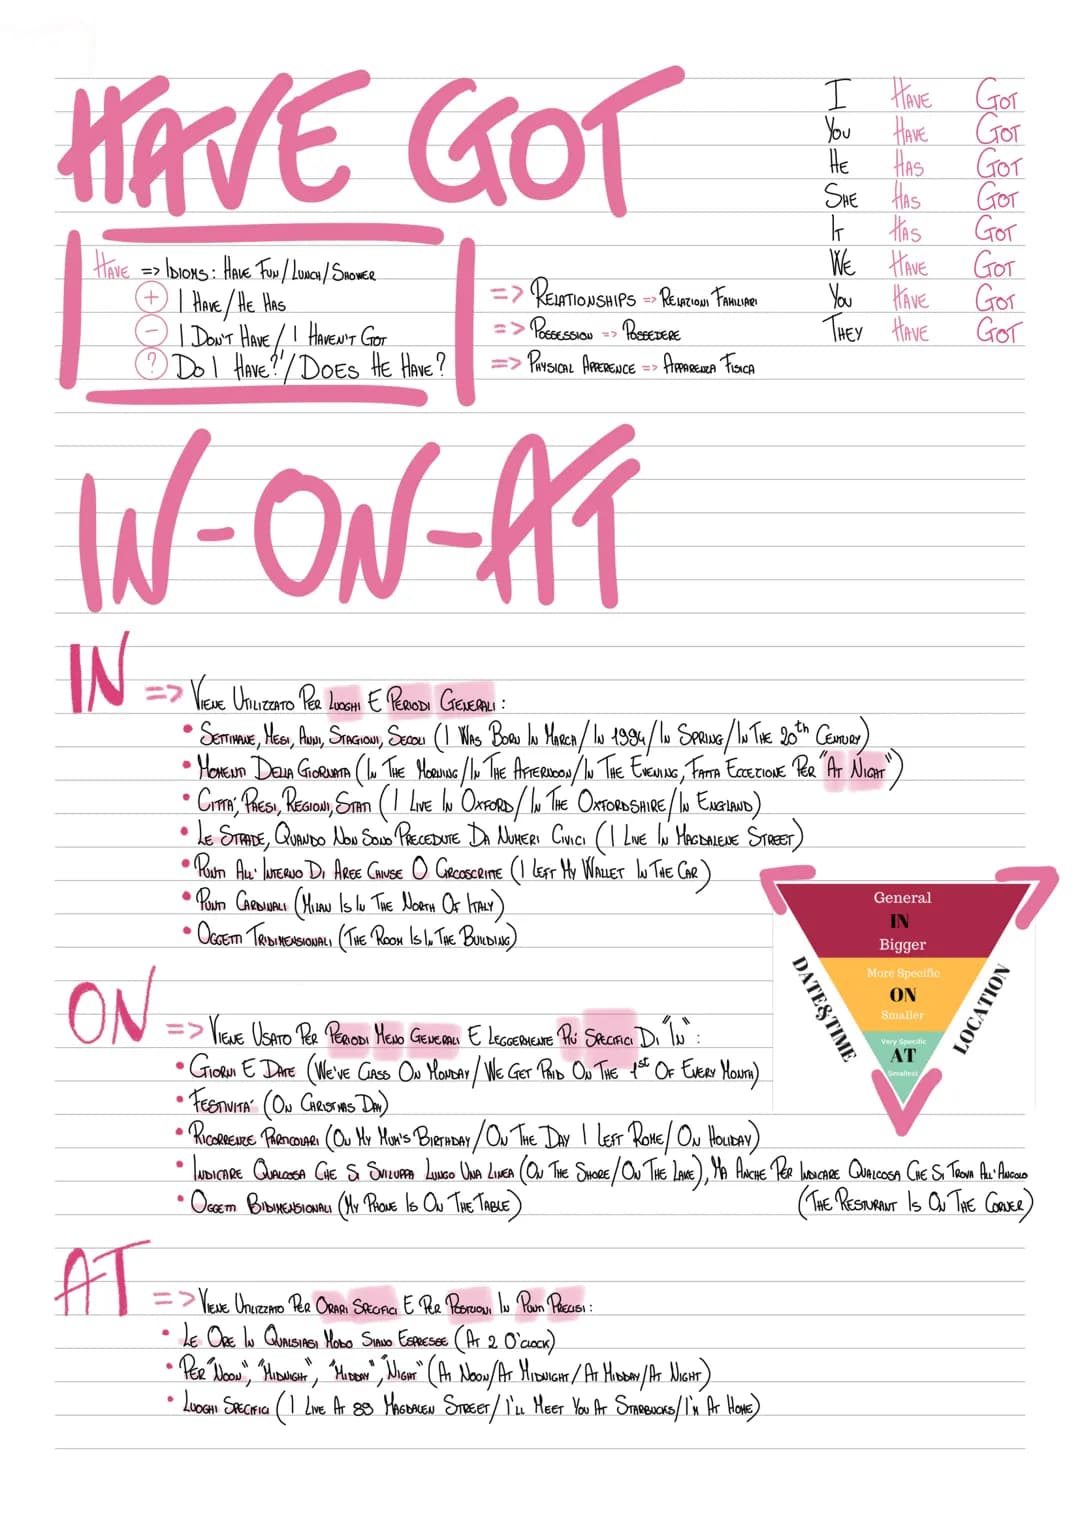 HAVE GOT
I HAVE GOT
YOU HAVE GOT
HE HAS GOT
SHE HAS GOT
IT HAS GOT
WE HAVE GOT
YOU HAVE GOT
THEY HAVE GOT
HAVE => IDIOMS: HAVE FUN/LUNCH/SHOWER
+ I HAVE/HE HAS
- I DON'T HAVE/I HAVEN'T GOT
? DO I HAVE?'/DOES HE HAVE?
=> RELATIONSHIPS => RELAZIONI FAMILIARI
=> POSSESSION => POSSEDERE
=> PHYSICAL APPERENCE => APPARENZA FISICA
IN-ON-AT
IN => VIENE UTILIZZATO PER LUOGHI E PERIODI GENERALI:
• SETTIMANE, MESI, ANNI, STAGIONI, SECOLI (I WAS BORN IN MARCH/IN 1994/IN SPRING/IN THE 20th CENTURY)
• MOMENTI DELLA GIORNATA (IN THE MORNING/IN THE AFTERNOON/IN THE EVENING, FATTA ECCEZIONE PER "AT NIGHT")
• CITTA', PAESI, REGIONI, STATI (I LIVE IN OXFORD/IN THE OXFORDSHIRE/IN ENGLAND)
• LE STRADE, QUANDO NON SONO PRECEDUTE DA NUMERI CIVICI (I LIVE IN MAGDALENE STREET)
• PUNTI ALL'INTERNO DI AREE CHIUSE O CIRCOSCRITE (I LEFT MY WALLET IN THE CAR)
• PUNTI CARDINALI (MILAN IS IN THE NORTH OF ITALY)
• OGGETTI TRIDIMENSIONALI (THE ROOM IS IN THE BUILDING)
General
IN
Bigger
More Specific
ON
Smaller
Very Specific
AT
Smallest
DATES/TIME
LOCATION
ON => VIENE USATO PER PERIODI MENO GENERALI E LEGGERMENTE PIÚ SPECIFICI DI "IN":
• GIORNI E DATE (WE'VE CLASS ON MONDAY/WE GET PAID ON THE 1st OF EVERY MONTH)
• FESTIVITA' (ON CHRISTMAS DAY)
• RICORRENZE PARTICOLARI (ON MY MUM'S BIRTHDAY/ON THE DAY I LEFT ROME/ON HOLIDAY)
• INDICARE QUALCOSA CHE SI SVILUPPA LUNGO UNA LINEA (ON THE SHORE/ON THE LAKE), MA ANCHE PER INDICARE QUALCOSA CHE SI TROVA ALL'ANGOLO
(THE RESTURANT IS ON THE CORNER)
• OGGETTI BIDIMENSIONALI (MY PHONE IS ON THE TABLE)
AT => VIENE UTILIZZATO PER ORARI SPECIFICI E PER POSIZIONI IN PUNTI PRECISI:
• LE ORE IN QUALSIASI MODO SIANO ESPRESSE (AT 2 O'CLOCK)
• PER "NOON", "MIDNIGHT", "MIDDAY", "NIGHT" (AT NOON/AT MIDNIGHT/AT MIDDAY/AT NIGHT)
• LUOGHI SPECIFICI (I LIVE AT 89 MAGDALEN STREET/I'LL MEET YOU AT STARBUCKS/I'M AT HOME)